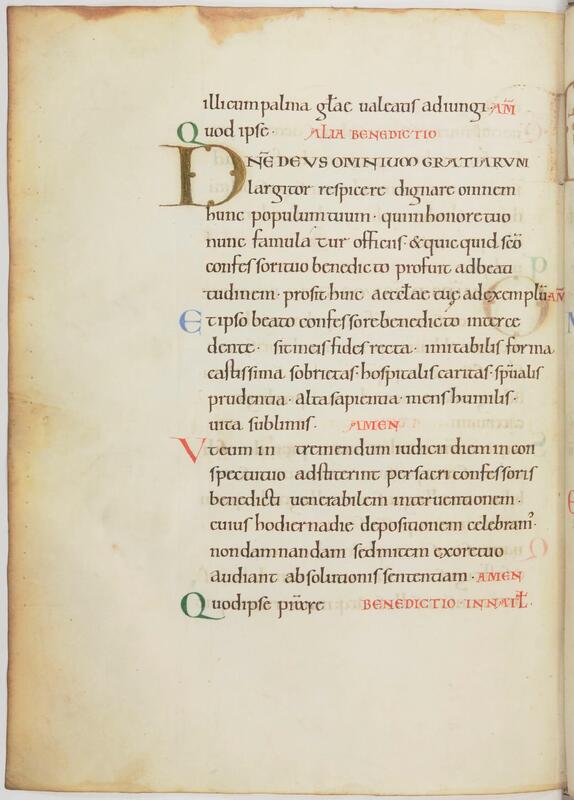 illicum palma gl̃ae ualeatis adiungi· AM̃
Quod ipse· ALIA BENEDICTIO
DNẼ DEVS OMNIUM GRATIARVM
largitor respicere dignare omnem
hunc populum tuum· qui in honore tuo
nunc famulatur officiis· & quicquid sc̃o
confessori tuo benedicto profuit ad beati
tudinem· prosit huic aecclae tuę ad exemplũ AM̃
Et ipso beato confessore benedicto interce
dente· sit in eis fides recta· imitabilis forma
castissima sobrietas· hospitalis caritas· sp̃ualis
prudentia· alta sapientia· mens humilis·
uita sublimis· AMEN
Ut cum in tremendum iudicii diem in con
spectu tuo adstiterint per sacri confessoris
benedicti uenerabilem interuentionem·
cuius hodierna die depositionem celebram̾·
non damnandam sed mitem ex ore tuo
audiant absolutionis sententiam· AMEN
Quod ipse
BENEDICTIO IN NAT̃L·